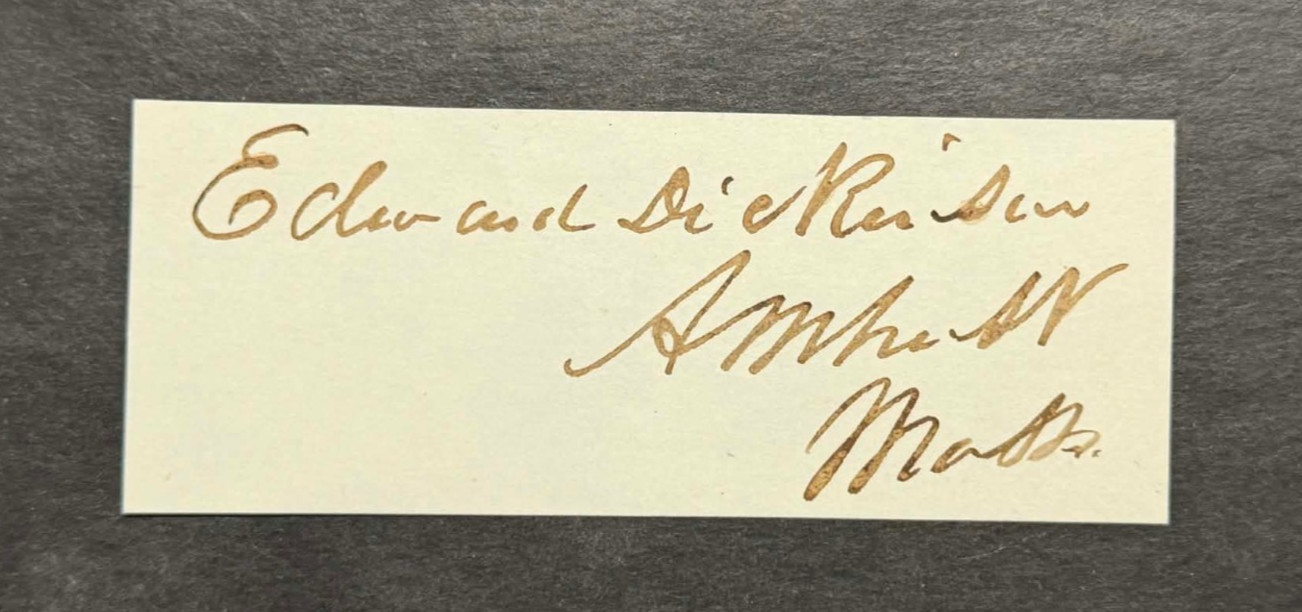 Edward Dickinson
Amherst
Mass.